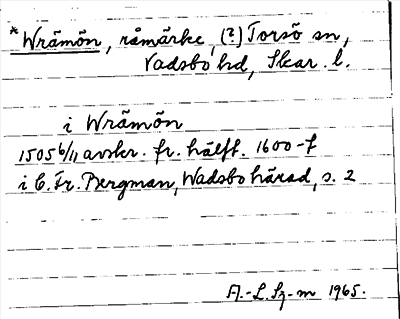 *Wrämön, råmärke, (?) Torsö sn,
Vadsbo hd, Skar. l.
i Wrämön
1505 6/11 avskr. fr. hälft. 1600-t
i C. Fr. Bergman, Wadsbo härad, s. 2
A.-L. Sz-m 1965.